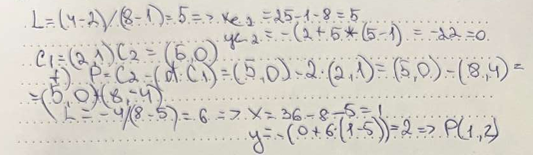 L=(4-2)/(8-1)=5=> xc2=25-1-8=5
yc2=-(2+5*(5-1)=-22=0.
C1=(2,1)C2=(5,0)
f) P=C2-(d.C1)=(5,0)-2.(2,1)=(5,0)-(8,4)=
=(5,0)+(8,-4)
L=-4/(8-5)=6=>X=36-8-5=1
y=-(0+6.(1-5))=2=>P(1,2)